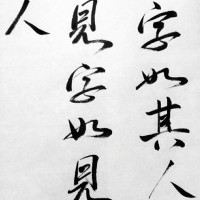 字如其人
見字如見
人